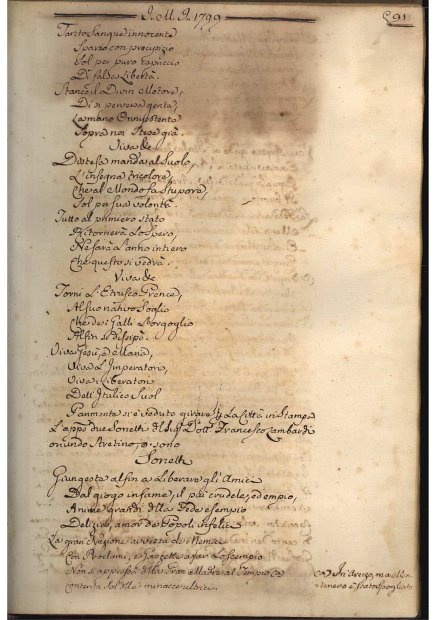 J. M. J. 1799
91
Tanto Sangue innocente
Sparso con precipizio
Sol per puro Capriccio
Di falsa Libertà.
Stanco il Divin Motore,
Di sì perversa gente,
La mano Onnipotente
Sopra noi stese già.
Viva &c
Distesa manda al Suolo,
L'insegna tricolore,
Che al Mondo fà stupore,
Sol per sua volontà.
Tutto al primiero stato
Ritornerà
Ne sarà l'anno intiero
Che questo si vedrà.
Viva &c
Torni L'Etrusco Prence,
Al suo nativo Soglio
Che de i Galli L'orgoglio
Alfin si dissipò.
Viva Gesù, e Maria,
Viva L'Imperatore,
Viva i Liberatori
Dell'Italico Suol
Parimente si è veduto girare p. La Città in Stampa
L'app. due Sonetti del Sig. Dott. Francesco Zambardi
oriundo Aretino, e sono
Sonetti
Giungeste alfin a Liberare gli Amici
Dal giogo infame, il più crudele, ed empio,
Anime grandi della Fede esempio
Delizie, amor de Popoli infelici
La gran Nazione avvezza de Nemici
Con Proclami, e Gazzette a far Lo scempio
Non si oppose della Gran Madre al Tempio (a)
contenta delle minacce ultrici
(a) In Arezzo, ma altro
tenero è stato spogliato